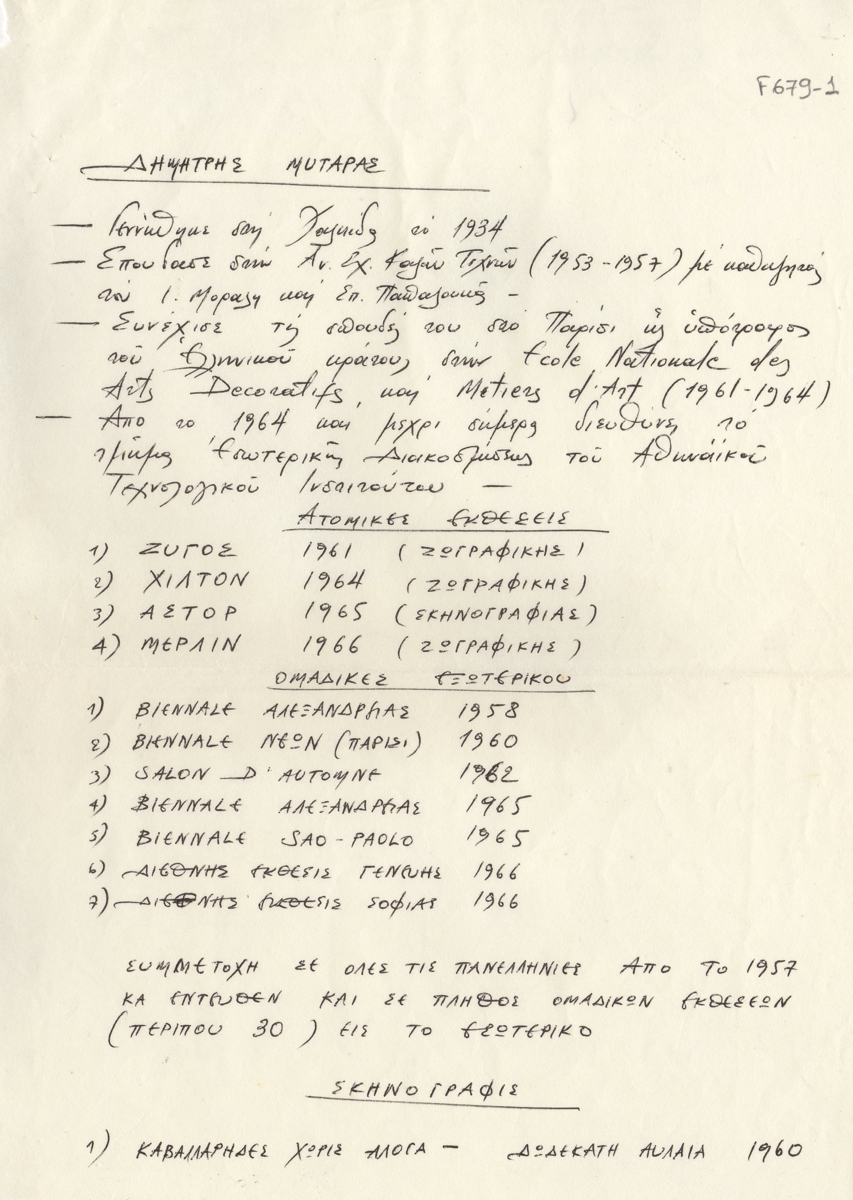 F679-1
ΔΗΜΗΤΡΗΣ ΜΥΤΑΡΑΣ
— Γεννήθηκε στη Χαλκίδα το 1934
— Σπούδασε στην Αν. Σχ. Καλών Τεχνών (1953-1957) με καθηγητάς
τον Ι. Μόραλη και Σπ. Παπαλουκάς –
— Συνέχισε τις σπουδές του στο Παρίσι ως υπότροφος
του Ελληνικού κράτους στην Ecole Nationale des
Arts Decoratifs, και Metiers d'Art (1961-1964)
— Απο το 1964 και μεχρι σήμερα διευθύνει το
τμήμα Εσωτερικής Διακοσμήσεως του Αθηναϊκού
Τεχνολογικού Ινστιτούτου —
ΑΤΟΜΙΚΕΣ ΕΚΘΕΣΕΙΣ
1) ΖΥΓΟΣ 1961 (ΖΩΓΡΑΦΙΚΗΣ)
2) ΧΙΛΤΟΝ 1964 (ΖΩΓΡΑΦΙΚΗΣ)
3) ΑΣΤΟΡ 1965 (ΣΚΗΝΟΓΡΑΦΙΑΣ)
4) ΜΕΡΛΙΝ 1966 (ΖΩΓΡΑΦΙΚΗΣ)
ΟΜΑΔΙΚΕΣ ΕΞΩΤΕΡΙΚΟΥ
1) BIENNALE ΑΛΕΞΑΝΔΡΕΙΑΣ 1958
2) BIENNALE ΝΕΩΝ (ΠΑΡΙΣΙ) 1960
3) SALON D'AUTOMNE 1962
4) BIENNALE ΑΛΕΞΑΝΔΡΕΙΑΣ 1965
5) BIENNALE SAO-PAOLO 1965
6) ΔΙΕΘΝΗΣ ΕΚΘΕΣΙΣ ΓΕΝΕΥΗΣ 1966
7) ΔΙΕΘΝΗΣ ΕΚΘΕΣΙΣ ΣΟΦΙΑΣ 1966
ΣΥΜΜΕΤΟΧΗ ΣΕ ΟΛΕΣ ΤΙΣ ΠΑΝΕΛΛΗΝΙΕΣ ΑΠΟ ΤΟ 1957
ΚΑ ΕΝΤΕΥΘΕΝ ΚΑΙ ΣΕ ΠΛΗΘΟΣ ΟΜΑΔΙΚΩΝ ΕΚΘΕΣΕΩΝ
(ΠΕΡΙΠΟΥ 30) ΕΙΣ ΤΟ ΕΣΩΤΕΡΙΚΟ
ΣΚΗΝΟΓΡΑΦΙΣ
1) ΚΑΒΑΛΛΑΡΗΔΕΣ ΧΩΡΙΣ ΑΛΟΓΑ – ΔΩΔΕΚΑΤΗ ΑΥΛΑΙΑ 1960